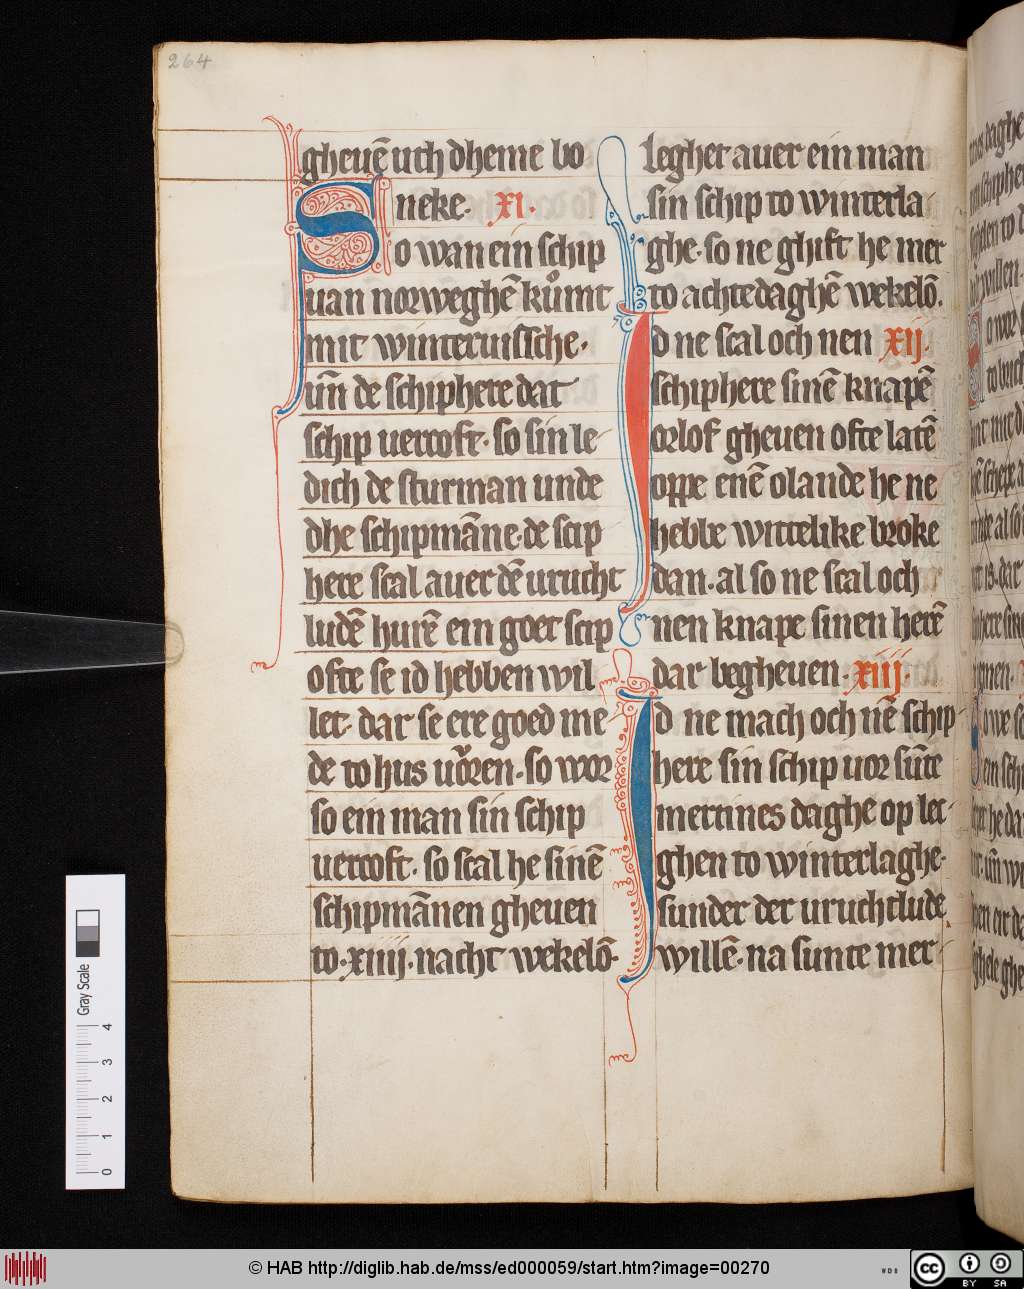 264
gheuē uth dheme bo
neke. XI.
So wan ein schip
uan norweghē kůmt
mit winteruissche.
uñ de schiphere dat
schip uercoft. so sin le
dich de sturman unde
dhe schipmāne. de scip
here scal auer dē urucht
ludē hurē ein goet scip
ofte se id hebben wil
let. dar se ere goed me
de to hus uo̊ren. so wor
so ein man sin schip
uercoft. so scal he sinē
schipmānen gheuen
to. xiiij. nacht wekelō.
Legher auer ein man
sin schip to winterla
ghe. so ne ghift he mer
to achte daghē wekelō.
Id ne scal och nen XIJ.
schiphere sinē knapē
orlof gheuen ofte latē
oppe enē olande he ne
hebbe wittelike broke
dan. al so ne scal och
nen knape sinen herē
dar begheuen. XIIJ.
Id ne mach och nē schip
here sin schip uor sūte
mertines daghe op lec
ghen to winterlaghe.
sunder der uruchtlude
willē. na sunte mer
Gray Scale
4
3
2
1
0
© HAB http://diglib.hab.de/mss/ed000059/start.htm?image=00270
WDB
cc
BY SA